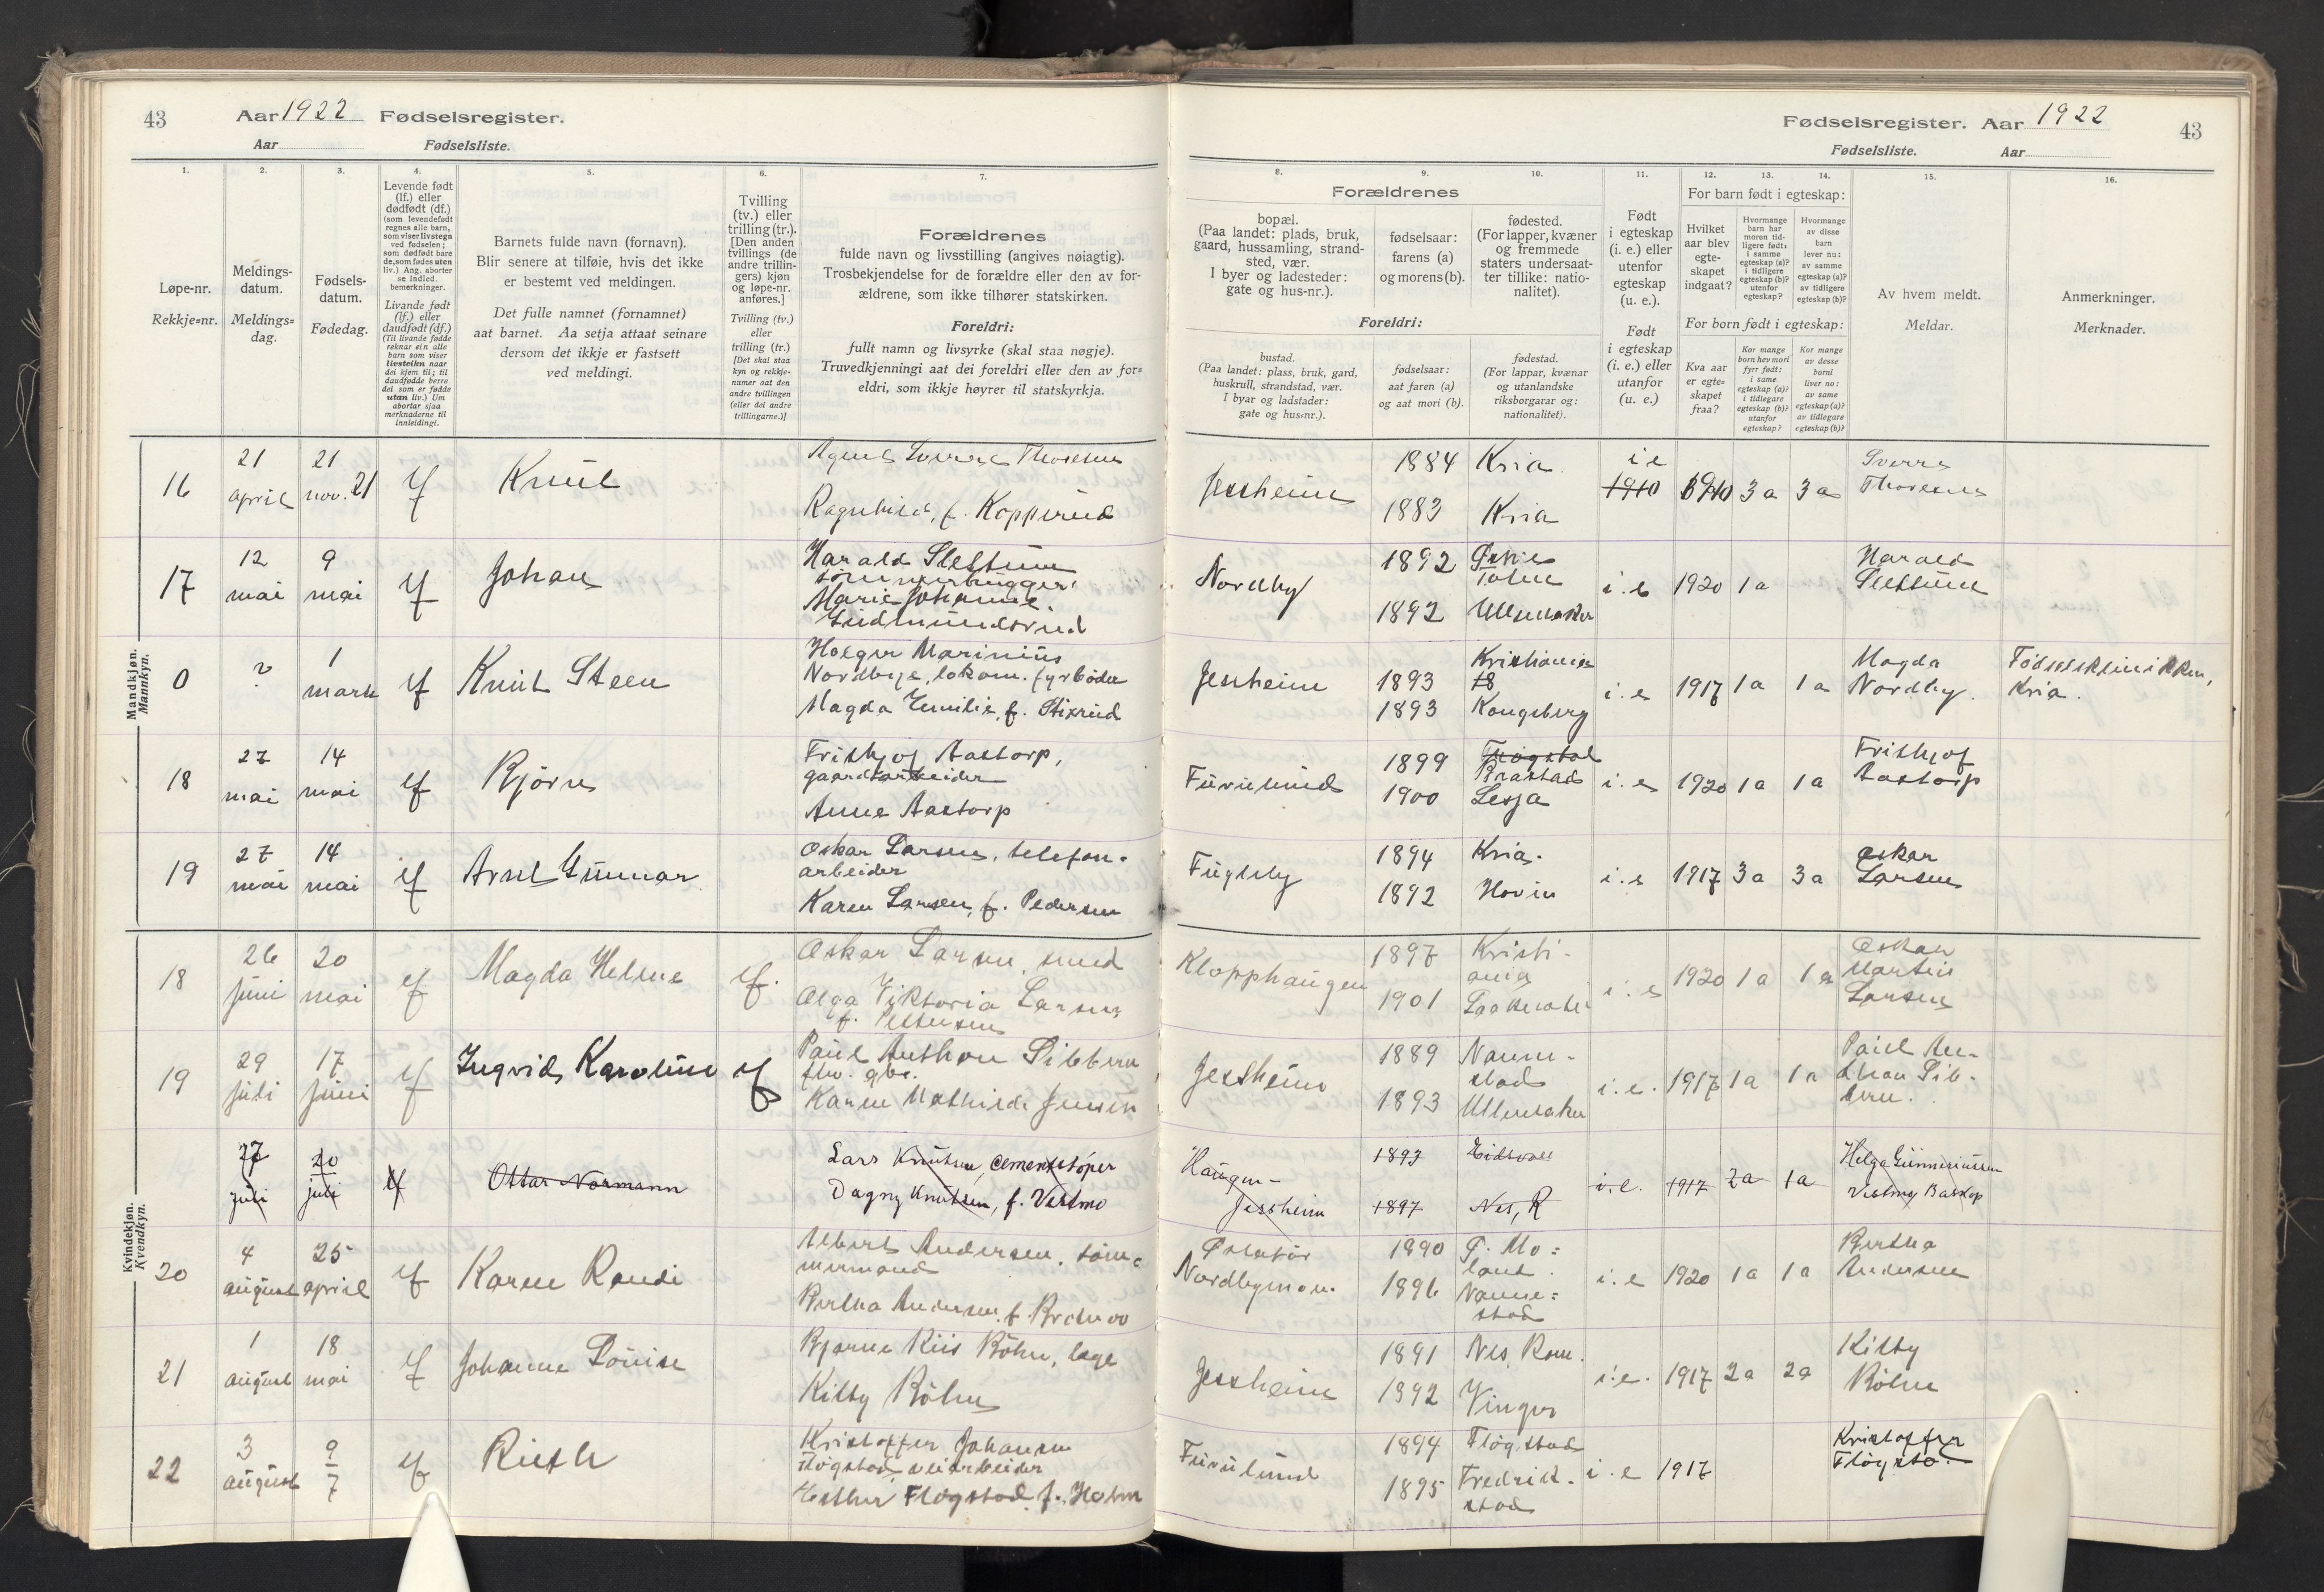 43
Aar 1922 Fødselsregister.
Aar Fødselsliste.
1.
2.
3.
4.
5.
6.
7.
Løpe-nr.
Rekkje=nr.
Meldings-
datum.
Meldings=
dag.
Fødsels-
datum.
Fødedag.
Levende født
(lf.) eller
dødfødt (df.)
(som levendefødt
regnes alle barn,
som viser livstegn
ved fødselen;
som dødfødt bare
de, som fødes uten
liv.) Ang. aborter
se indled.
bemerkninger.
Livande født
(lf.) eller
daudfødt (df.)
(Til livande fødde
reknar ein alle
barn som viser
livsteikn naar
dei kjem til; til
daudfødde berre
dei som er fødde
utan liv.) Um
abortar sjaa
merknaderne til
innleidingi.
Barnets fulde navn (fornavn).
Blir senere at tilføie, hvis det ikke
er bestemt ved meldingen.
Det fulle namnet (fornamnet)
aat barnet. Aa setja attaat seinare
dersom det ikkje er fastsett
ved meldingi.
Tvilling
(tv.) eller
trilling (tr.).
[Den anden
tvillings (de
andre trillin-
gers) kjøn
og løpe-nr.
anføres.]
Tvilling (tv.)
eller
trilling (tr.)
[Det skal staa
kyn og rekkje-
numer aat den
andre tvillingen
(eller dei andre
trillingarne.)]
Forældrenes
fulde navn og livsstilling (angives nøiagtig).
Trosbekjendelse for de forældre eller den av for-
ældrene, som ikke tilhører statskirken.
Foreldri:
fullt namn og livsyrke (skal staa nøgje).
Truvedkjenningi aat dei foreldri eller den av for=
eldri, som ikkje høyrer til statskyrkja.
Mandkjøn.
Mannkyn.
16
21
april
21
nov. 21
lf
Knut
Thoresen
Ragnhild, f. Kopperud
17
12
mai
9
mai
lf
Johan
Harald Slettum
Marie Johanne
Gudmundsrud
0
?
1
mars
lf
Knut Steen
Holger Marinius
Nordbye, lokom. fyrbøder
Magda Emilie, f. Stixrud
18
27
mai
14
mai
lf
Bjørn
Frithjof Aastorp,
gaardsarbeider
Anne Aastorp
19
27
mai
14
mai
lf
Arnt Gunnar
Oskar Larsen, telefon-
arbeider
Karen Larsen, f. Pedersen
Kvindekjøn.
Kvendkyn.
18
26
juni
20
mai
lf
Magda Helene
lf.
Oskar Larsen, smed
Olga Viktoria Larsen
f. Pettersen
19
29
juli
17
juni
lf
Ingrid Karoline
lf
Paul Anthon Sibbern
Karen Mathilde Jensen
27
juli
20
juli
lf
Ottar Normann
Lars Knutsen, cementstøper
Dagny Knutsen, f. Vestmo
20
4
august
25
april
lf
Karen Randi
Albert Andersen, tøm-
mermand
Bertha Andersen, f.
21
1
august
18
mai
lf
Johanne Louise
Bjarne Kiis Bøhn, læge
Kitty Bøhn
22
3
august
9
7
lf
Ruth
Kristoffer Johansen
Fløgstad, veiarbeider
Esther Fløgstad f. Holm
Fødselsregister. Aar 1922
43
Fødselsliste. Aar
8.
9.
10.
11.
12.
13.
14.
15.
16.
Forældrenes
bopæl.
(Paa landet: plads, bruk,
gaard, hussamling, strand-
sted, vær.
I byer og ladesteder:
gate og hus-nr.).
fødselsaar:
farens (a)
og morens (b).
fødested.
(For lapper, kvæner
og fremmede
staters undersaat-
ter tillike: natio-
nalitet).
Foreldri:
bustad.
(Paa landet: plass, bruk, gard,
huskrull, strandstad, vær.
I byar og ladstader:
gate og hus=nr.).
fødselsaar:
aat faren (a)
og aat mori (b).
fødestad.
(For lappar, kvænar
og utanlandske
riksborgarar og:
nationalitet).
Født
i egteskap
(i. e.) eller
utenfor
egteskap
(u. e.).
Født
i egteskap
(i. e.) eller
utanfor
(u. e.)
For barn født i egteskap:
Hvilket
aar blev
egte-
skapet
indgaat?
Hvormange
barn har
moren tid-
ligere født:
i samme
egteskap (a)?
i tidligere
egteskap (b)?
utenfor
egteskap?
Hvormange
av disse
barn
lever nu:
av samme
egteskap (a)?
av tidligere
egteskap (b)?
For born født i egteskap:
Kva aar
er egte=
skapet
fraa?
Kor mange
born hev mori
fyrr født:
i same
egteskap (a)?
i tidlegare
egteskap (b)?
utanfor
egteskap?
Kor mange
av desse
borni
liver no:
av same
egteskap (a)?
av tidlegare
egteskap (b)?
Av hvem meldt.
Meldar.
Anmerkninger.
Merknader.
Jessheim
1884
Kria
1883
Kria
i e
1910
1910
3 a
3 a
Sverre
Thoresen
Nordby
1892
Østre
Toten
1892
Ullensaker
i. e
1920
1 a
Harald
Slettum
Jessheim
1893
Kristiania
1893
Kongsberg
i. e
1917
1 a
1 a
Magda
Nordby.
Fødselsklinikken,
Kria.
Furulund
1899
Fløgstad
Brastad
1900
Lesja
i. e
1920
1 a
1 a
Frithjof
Aastorp
Fugleby
1894
Kria.
1892
Hovin
i. e
1917
3 a
3 a
Oskar
Larsen
Klopphaugen
1897
Kristi-
ania
1901
i. e
1920
1 a
1 a
Oskar
Martin
Larsen
Jessheim
1889
Nanne-
stad
1893
Ullensaker
i. e.
1917
1 a
1 a
Paul An-
thon Sib-
bern.
Haugen-
Jessheim
1893
Eidsvoll
1897
Nes, R
i. e.
1917
2 a
1 a
Helga Gunneriussen
Nordbymoen.
1890
1896
Nanne=
stad
i. e
1920
1 a
1 a
Bertha
Andersen
Jessheim
1891
Nes, Rom.
1892
Vinger
i. e.
1917
2 a
2 a
Kitty
Bøhn
Furulund
1894
Fløgstad
1895
Fredrik-
stad
i. e
1917
Kristoffer